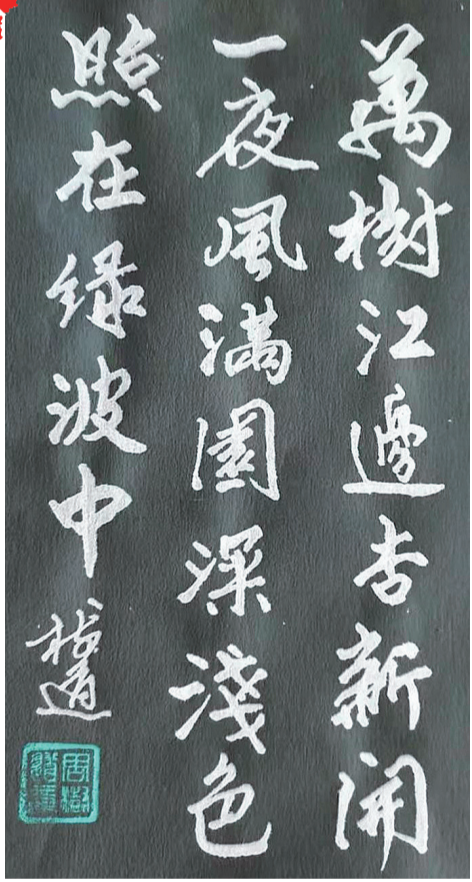 萬樹江邊杏新開
一夜風滿園深淺色
照在绿波中
樹道